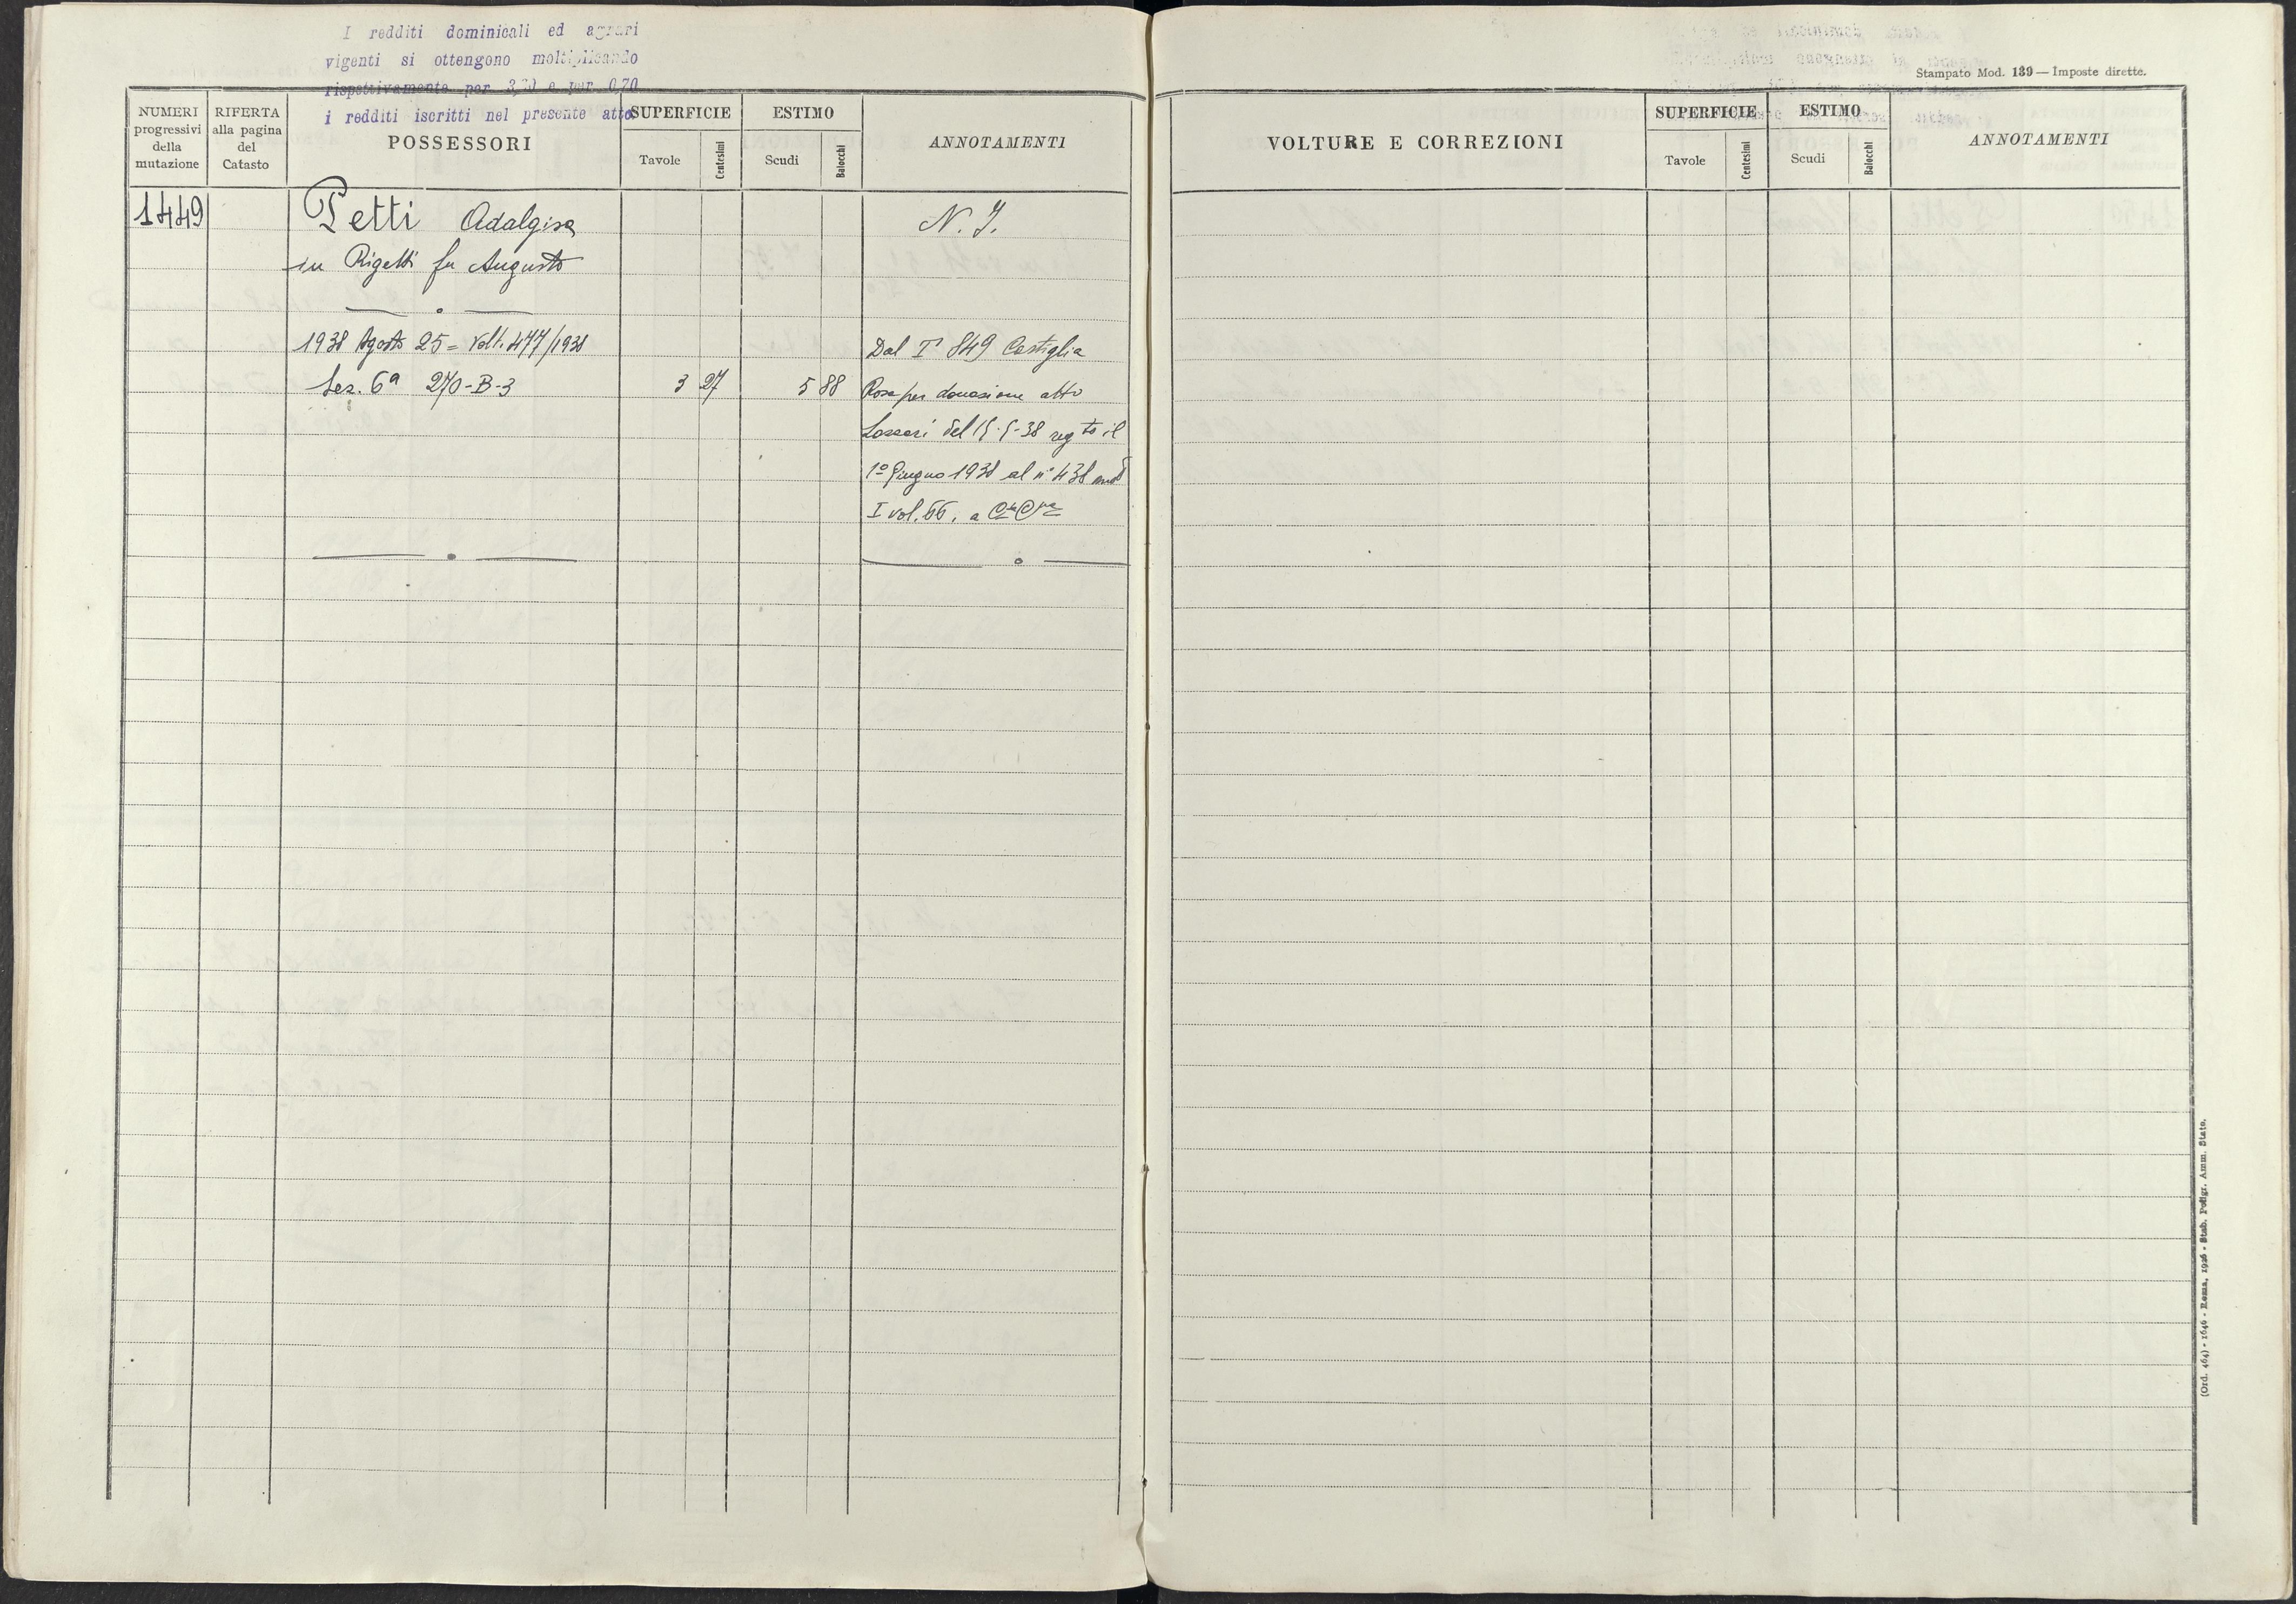 I redditi dominicali ed agrari
vigenti si ottengono moltiplicando
rispettivamente per 3,20 e per 0,70
i redditi iscritti nel presente atto.
NUMERI progressivi della mutazione
RIFERTA alla pagina del Catasto
POSSESSORI
SUPERFICIE
Tavole
Centesimi
ESTIMO
Scudi
Baiocchi
ANNOTAMENTI
1449
Petti Adalgisa
in Rigetti fu Augusto
N. I.
1938 Agosto 25 = Volt. 477/1938
Sez. 6ª 270-B-3
3 27
5 88
Dal I° 849 Castiglia
Rosa per donazione atto
del 15-5-38 reg to il
1º Giugno 1938 al n° 438 mod
I vol. 66. a
Stampato Mod. 139 — Imposte dirette.
VOLTURE E CORREZIONI
SUPERFICIE
Tavole
Centesimi
ESTIMO
Scudi
Baiocchi
ANNOTAMENTI
(Ord. 464) - 1646 - Roma, 1926 - Stab. Poligr. Amm. Stato.